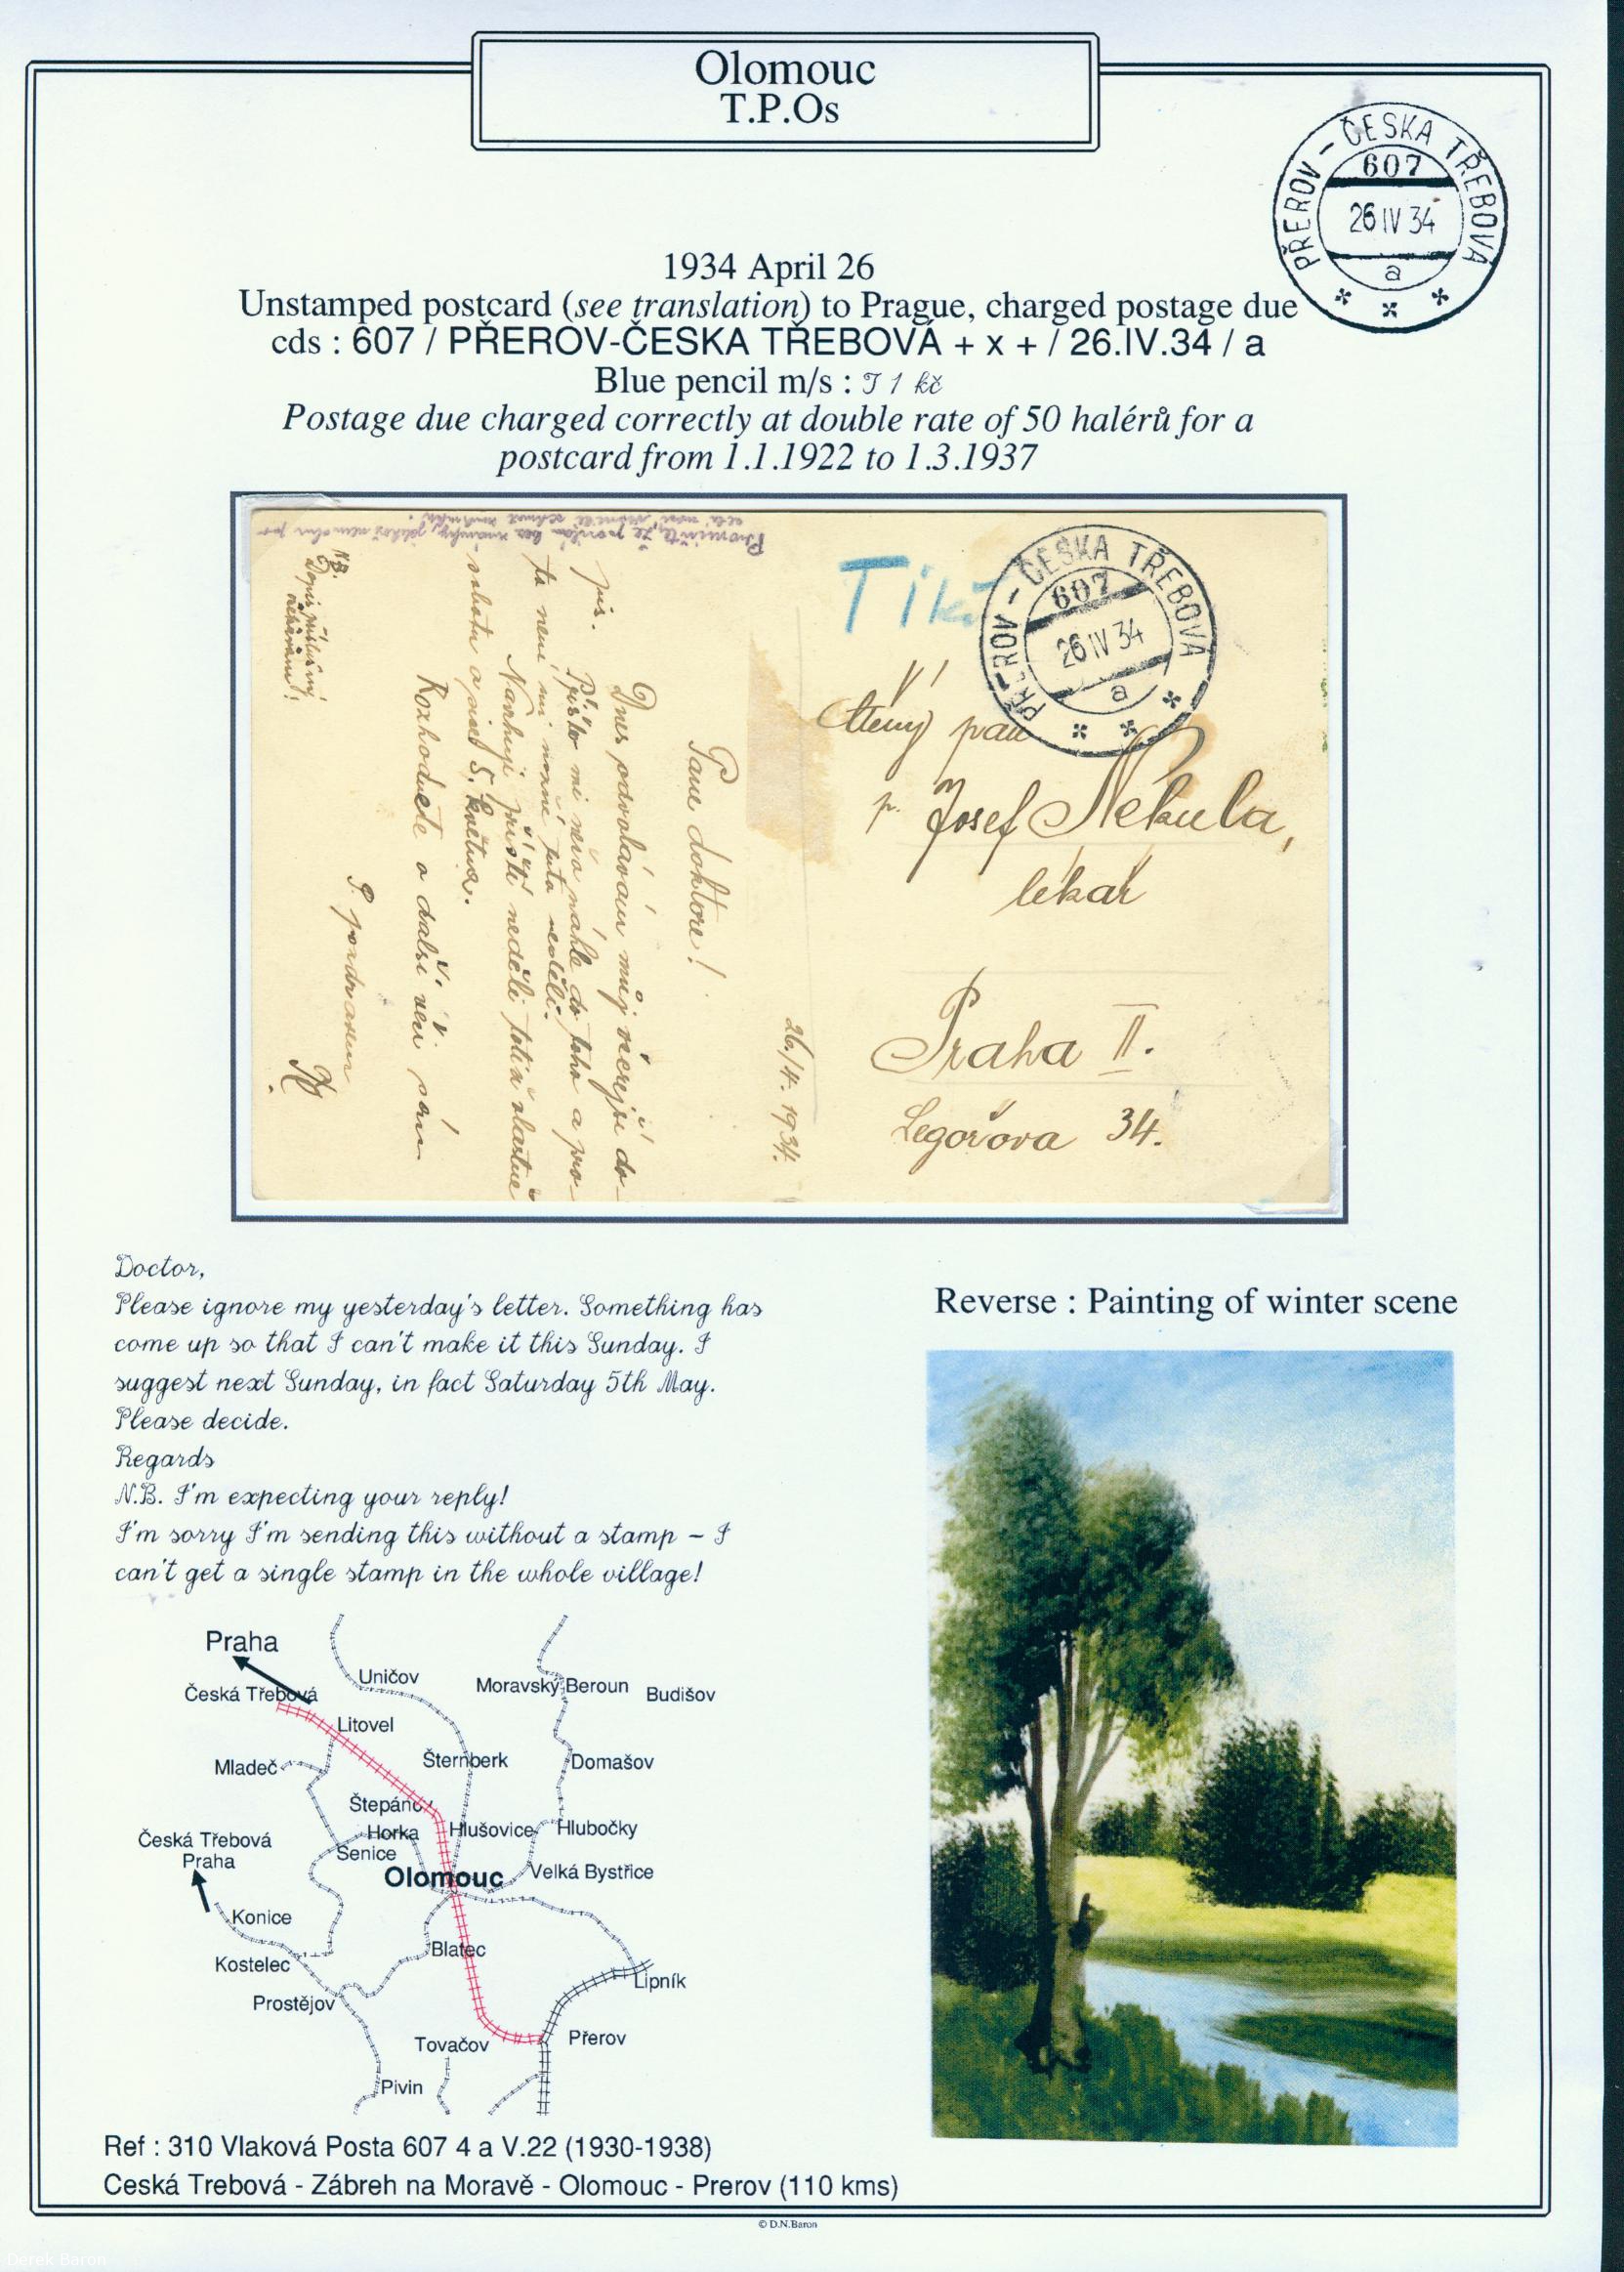 Olomouc
T.P.Os
PŘEROV - ČESKA TŘEBOVÁ
607
26 IV 34
a
1934 April 26
Unstamped postcard (see translation) to Prague, charged postage due
cds : 607 / PŘEROV-ČESKA TŘEBOVÁ + x + / 26.IV.34 / a
Blue pencil m/s : T 1 kč
Postage due charged correctly at double rate of 50 halérů for a
postcard from 1.1.1922 to 1.3.1937
T 1 kč
PŘEROV - ČESKA TŘEBOVÁ
607
26 IV 34
a
pan
p. Josef Nekula,
lékař
Praha II.
Legerova 34.
26/4. 1934.
Pane doktore!
Dnes odvolávám můj včerejší do-
pis. Přišlo mi něco náhle do toho a pro-
to není mi možné tuto neděli.
Navrhuji příští neděli totiž vlastně
sobotu a sice 5. května.
Rozhodněte o další věci sám
S pozdravem
NB.
Dopis
očekávám!
Promiňte, že posílám bez známky, jelikož
Doctor,
Please ignore my yesterday's letter. Something has
come up so that I can't make it this Sunday. I
suggest next Sunday, in fact Saturday 5th May.
Please decide.
Regards
N.B. I'm expecting your reply!
I'm sorry I'm sending this without a stamp - I
can't get a single stamp in the whole village!
Reverse : Painting of winter scene
Praha
Uničov
Moravský Beroun
Budišov
Česká Třebová
Litovel
Mladeč
Šternberk
Domašov
Štepánov
Horka
Hlušovice
Hlubočky
Česká Třebová
Praha
Senice
Olomouc
Velká Bystřice
Konice
Blatec
Kostelec
Lipník
Prostějov
Tovačov
Přerov
Pivin
Ref : 310 Vlaková Posta 607 4 a V.22 (1930-1938)
Ceská Trebová - Zábreh na Moravě - Olomouc - Prerov (110 kms)
© D.N.Baron
Derek Baron